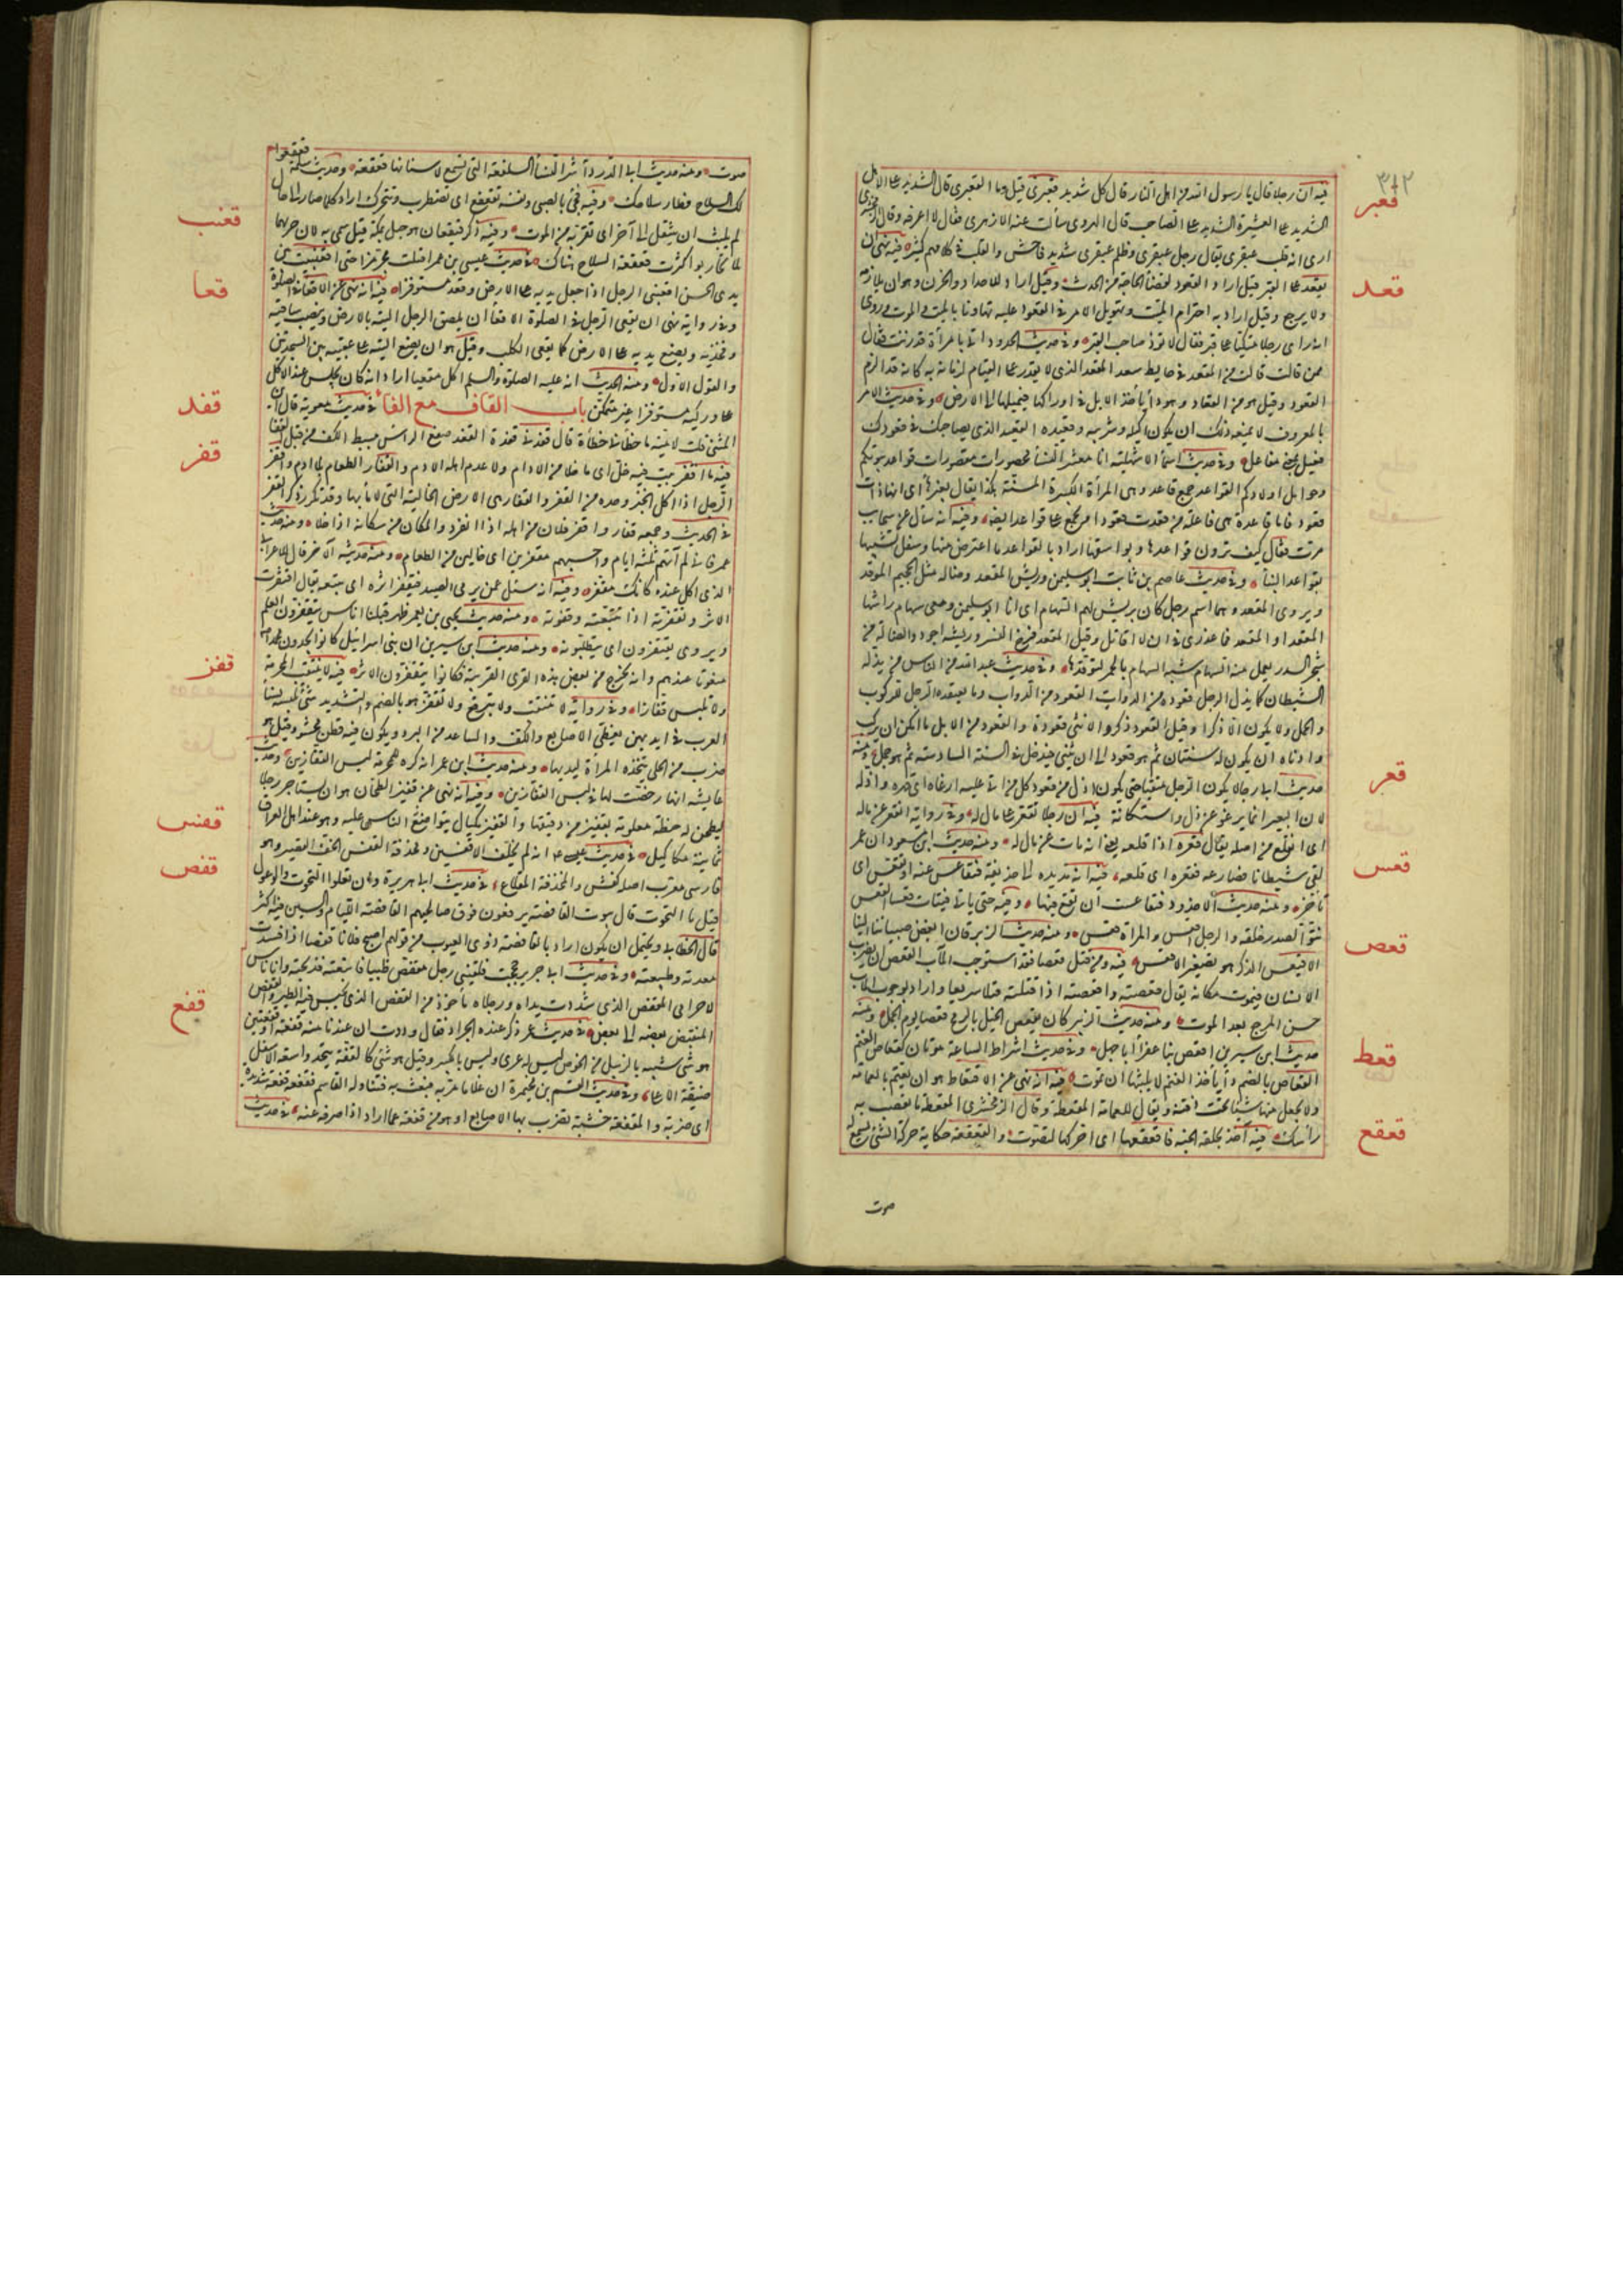 ٣٨٢
قعبر
فيه ان رجلا قال يا رسول الله من اهل النار قال كل شديد قعبرى قيل وما القعبرى قال الشديد على الاهل
الشديد على العشيرة الشديد على الصاحب قال الهروى سألت عنه الازهرى فقال لا اعرفه وقال الزمخشرى
ارى انه قلب عبقرى يقال رجل عبقرى وظلم عبقرى شديد فاحش والقلب فى كلامهم كثير فيه نهى ان
قعد
يقعد على القبر قيل اراد القعود لقضاء الحاجة من الحدث وقيل اراد للاحداد والحزن وهو ان يلازمه
ولا يرجع وقيل اراد به احترام الميت وتهويل الامر فى القعود عليه تهاونا بالميت والموت وروى
انه راى رجلا متكيا على قبر فقال لا تؤذ صاحب القبر وفى حديث الحدود اتى بامرأة قد زنت فقال
ممن قالت من المقعد الذى فى حايط سعد المقعد الذى لا يقدر على القيام لزمانة به كانه قد الزم
القعود وقيل هو من القعاد وهو داء يأخذ الابل فى اوراكها فيميلها الى الارض وفى حديث الامر
بالمعروف لا يمنعه ذلك ان يكون اكيله وشريبه وقعيده القعيد الذى يصاحبك فى قعودك
فعيل بمعنى مفاعل وفى حديث اسماء الاشهلية انا معشر النساء محصورات مقصورات قواعد بيوتكم
وحوامل اولادكم القواعد جمع قاعد وهى المرأة الكبيرة المسنة هكذا يقال بغير هاء اى انها ذات
قعود فاما قاعدة فهى فاعلة من قعدت قعودا ويجمع على قواعد ايضا وفيه انه سأل عن سحايب
مرت فقال كيف ترون قواعدها وبواسقها اراد بالقواعد ما اعترض منها وسفل تشبيها
بقواعد البناء وفى حديث عاصم بن ثابت ابو سليمن وريش المقعد وضالة مثل الجحيم الموقد
ويروى المقعد هما اسم رجل كان يريش لهم السهام اى انا ابو سليمن ومعى سهام راشها
المقعد او المعقد فما عذرى فى ان لا اقاتل وقيل المقعد فرخ النسر وريشه اجود والضالة من
شجر السدر يعمل منها السهام شبه السهام بالجمر لتوقدها وفى حديث عبد الله من الناس من يذله
الشيطان كما يذل الرجل قعوده من الدواب القعود من الدواب ما يقتعده الرجل للركوب
والحمل ولا يكون الا ذكرا وقيل القعود ذكر والانثى قعودة والقعود من الابل ما امكن ان يركب
وادناه ان يكون له سنتان ثم هو قعود الى ان يثنى فيدخل فى السنة السادسة ثم هو جمل ومنه
قعر
حديث ابى رجاء لا يكون الرجل متقيا حتى يكون اذل من قعود كل من اتى عليه ارغاه اى قهره واذله
لان البعير انما يرغو عن ذل واستكانة فيه ان رجلا تقعر على مال له وفى رواية انقعر عن ماله
اى انقلع من اصله يقال قعره اذا قلعه يعنى انه مات عن مال له ومنه حديث ابن مسعود ان عمر
قعس
لقى شيطانا فصارعه فقعره اى قلعه فيه انه مد يده الى حذيفة فتقاعس عنه او تقعس اى
تاخر ومنه حديث الاخدود فتقاعست ان تقع فيها وفيه حتى ياتى فتيات قعسا القعس
نتو الصدر خلقة والرجل اقعس والمراة قعسا ومنه حديث الزبرقان ابغض صبياننا الينا
قعص
الاقيعس الذكر هو تصغير الاقعس فيه ومن قتل قعصا فقد استوجب المآب القعص ان يضرب
الانسان فيموت مكانه يقال قعصته واقعصته اذا قتلته قتلا سريعا واراد بوجوب المآب
حسن المرجع بعد الموت ومنه حديث الزبير كان يقعص الخيل بالرمح قعصا يوم الجمل ومنه
حديث ابن سيرين اقعص ابنا عفراء ابا جهل وفى حديث اشراط الساعة موتان كقعاص الغنم
قعط
القعاص بالضم داء يأخذ الغنم لا يلبثها ان تموت فيه انه نهى عن الاقتعاط هو ان يعتم بالعمامة
ولا يجعل منها شيئا تحت ذقنه ويقال للعمامة المقعطة وقال الزمخشرى المقعطة ما تعصب به
قعقع
رأسك فيه آخذ بحلقة الجنة فاقعقعها اى احركها لتصوت والقعقعة حكاية حركة الشئ يسمع له
صوت
صوت ومنه حديث ابى الدرداء شر النساء السلفعة التى تسمع لاسنانها قعقعة وحديث سلمة فقعقعوا
لك السلاح فطار سلاحك وفيه فجئ بالصبى ونفسه تقعقع اى تضطرب وتتحرك اراد كلما صار الى حال
قعنب
لم يلبث ان ينتقل الى آخرى تقربه من الموت وفيه ذكر قعيقعان هو جبل بمكة قيل سمى به لان جرهما
لما تحاربوا كثرت قعقعة السلاح هناك فى حديث عيسى بن عمر اقبلت مجرمزا حتى اقعنبيت بين
قعا
يدى الحسن اقعنبى الرجل اذا جعل يديه على الارض وقعد مستوفزا فيه انه نهى عن الاقعاء فى الصلوة
وفى رواية نهى ان يقعى الرجل فى الصلوة الاقعاء ان يلصق الرجل اليتيه بالارض وينصب ساقيه
وفخذيه ويضع يديه على الارض كما يقعى الكلب وقيل هو ان يضع اليتيه على عقبيه بين السجدتين
والقول الاول ومنه الحديث انه عليه الصلوة والسلم اكل مقعيا اراد انه كان يجلس عند الاكل
قفد
على وركيه مستوفزا غير متمكن باب القاف مع الفاء فى حديث معوية قال ابن
المثنى قلت لامية ما حطأنى حطأة قال قفدنى قفدة القفد صفع الراس ببسط الكف من قبل القفا
قفر
فيه ما اقفر بيت فيه خل اى ما خلا من الادام ولا عدم اهله الادم والقفار الطعام بلا ادم واقفر
الرجل اذا اكل الخبز وحده من القفر والقفار هى الارض الخالية التى لا ماء بها وقد تكرر ذكر القفر
فى الحديث وجمعه قفار واقفر فلان من اهله اذا انفرد والمكان من سكانه اذا خلا ومنه حديث
عمر فانى لم آتهم ثلثة ايام واحسبهم مقفرين اى خالين من الطعام ومنه حديثه الآخر قال للاعرابى
الذى اكل عنده كانك مقفر وفيه انه سئل عمن يرمى الصيد فيقتفر اثره اى يتبعه يقال اقتفرت
الاثر وتقفرته اذا تتبعته وقفوته ومنه حديث يحيى بن يعمر ظهر قبلنا اناس يتقفرون العلم
ويروى يقتفرون اى يتطلبونه ومنه حديث ابن سيرين ان بنى اسرائيل كانوا يجدون محمدا
قفز
منعوتا عندهم وانه يخرج من بعض هذه القرى العربية فكانوا يتقفرون الاثر فيه لا تنتقب المحرمة
ولا تلبس قفازا وفى رواية لا تنتقب ولا تبرقع ولا تقفز هو بالضم والتشديد شئ تلبسه نساء
العرب فى ايديهن يغطى الاصابع والكف والساعد من البرد ويكون فيه قطن محشو وقيل هو
ضرب من الحلى تتخذه المراة ليديها ومنه حديث ابن عمر انه كره للمحرمة لبس القفازين وحديث
عايشة انها رخصت لها فى لبس القفازين وفيه انه نهى عن قفيز الطحان هو ان يستاجر رجلا
قفس
ليطحن له حنطة معلومة بقفيز من دقيقها والقفيز مكيال يتواضع الناس عليه وهو عند اهل العراق
ثمانية مكاكيك فى حديث عيسى عم انه لم يخلف الا قفشين ومخذفة القفش الخف القصير وهو
قفص
فارسى معرب اصله كفش والمخذفة المقلاع فى حديث ابى هريرة وان تعلوا التحوت الوعول
قيل ما التحوت قال بيوت القافصة يرفعون فوق صالحيهم القافصة اللئام والسين فيه اكثر
قال الخطابى ويحتمل ان يكون اراد بالقافصة ذوى العيوب من قولهم اصبح فلان قفصا اذا فسدت
معدته وطبيعته وفى حديث ابى جرير حججت فلقينى رجل مقفص ظبيا فاتبعته فذبحته وانا ناس
لاحرامى المقفص الذى شدت يداه ورجلاه ماخوذ من القفص الذى يحبس فيه الطير والقفص
قفع
المنقبض بعضه الى بعض فى حديث عمر ذكر عنده الجراد فقال وددت ان عندنا منه قفعة او قفعتين
هو شئ شبيه بالزبيل من الخوص ليس له عرى وليس بالكبير وقيل هو شئ كالقفة يتخذ واسعة الاسفل
ضيقة الاعلى وفى حديث القسم بن مخيمرة ان غلاما مر به فعبث به فتناوله القاسم فقفعه قفعة شديدة
اى ضربه والمقفعة خشبة تضرب بها الاصابع او هو من قفعه عما اراد اذا صرفه عنه فى حديث